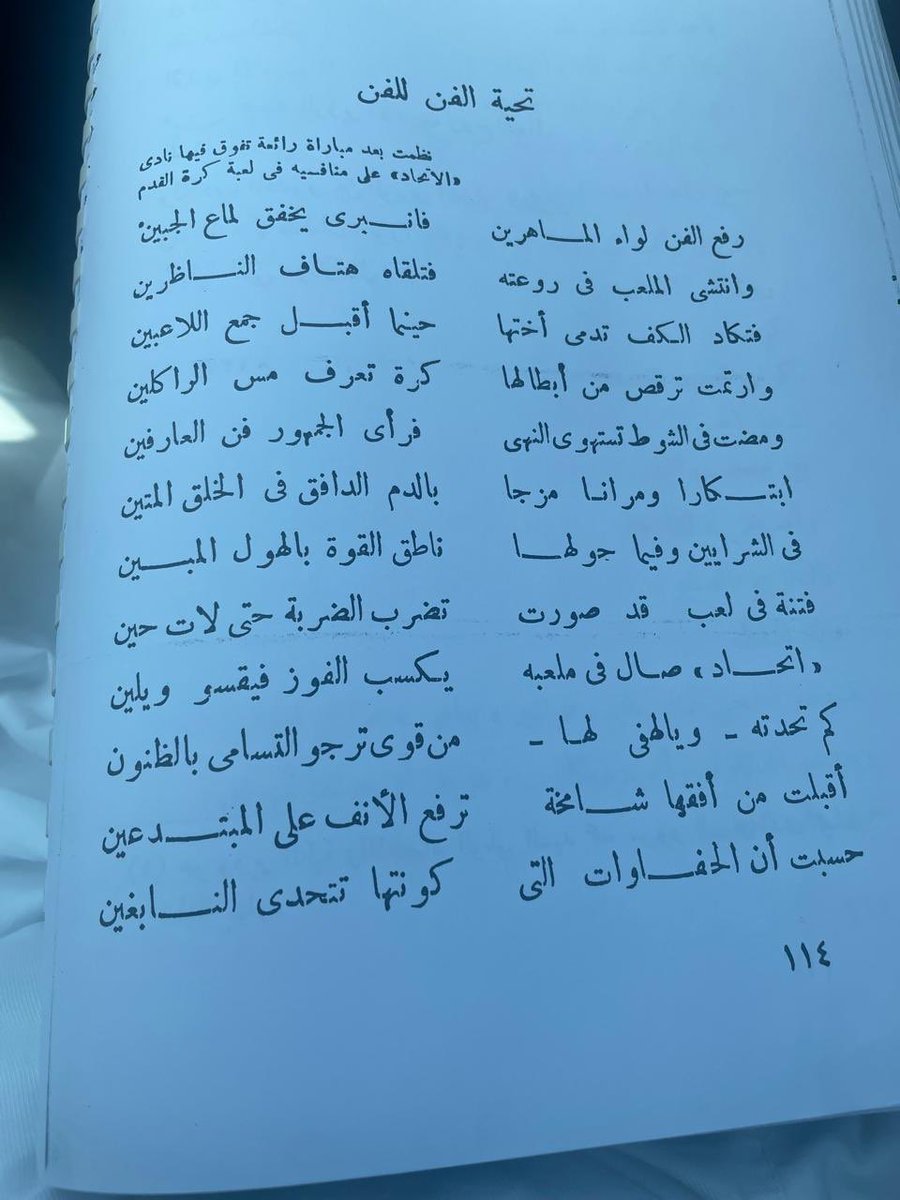 تحية الفن للفن
نظمت بعد مباراة رائعة تفوق فيها نادى
«الاتحاد» على منافسيه فى لعبة كرة القدم
رفع الفن لواء المـاهرين فانـبرى يخفق لماع الجبين
وانتشى الملعب فى روعته فتلقاه هتـاف النـاظرين
فتكاد الكف تدمى أختها حينما أقبـل جمع اللاعبين
وارتمت ترقص من أبطالها كرة تعرف مس الراكلين
ومضت فى الشوط تستهوى النهى فرأى الجمهور فن العارفين
ابتـكارا ومرانـا مزجا بالدم الدافق فى الخلق المتين
فى الشرايين وفيما حولهـا ناطق القوة بالهول المبـين
فتنة فى لعب قد صورت تضرب الضربة حتى لات حين
«اتحـاد» صال فى ملعبه يكسب الفوز فيقسو ويلين
كم تحدته - ويالهفى لهـا - من قوى ترجو التسامى بالظنون
أقبلت من أفقها شـامخة ترفع الأنف على المبتـدعين
حسبت أن الحفـاوات التى كونتها تتحدى النـابغين
١١٤